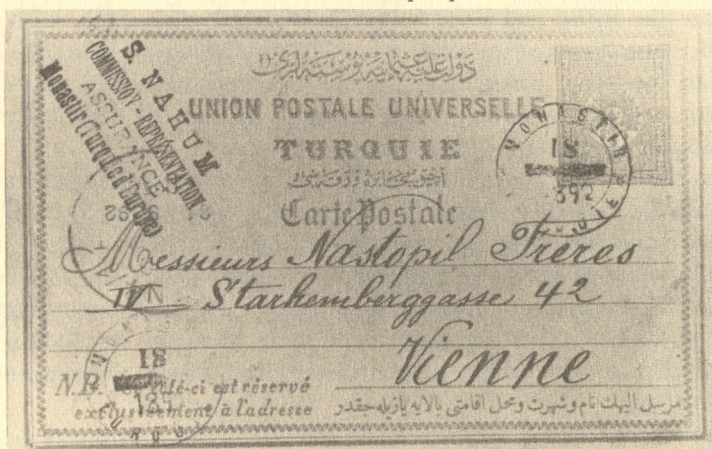 S. NAHUM
COMMISSION - REPRÉSENTATION
ASSURANCE
Monastir (Turquie d'Europe)
دولت علیه عثمانیه پوسته لری
UNION POSTALE UNIVERSELLE
TURQUIE
Carte Postale
MONASTIR
18
Messieurs Nastopil Frères
IV Starhemberggasse 42
Vienne
N.B. côté-ci est réservé
exclusivement à l'adresse
مرسل الیهك نام و شهرت و محل اقامتی بالایه یازیله جقدر